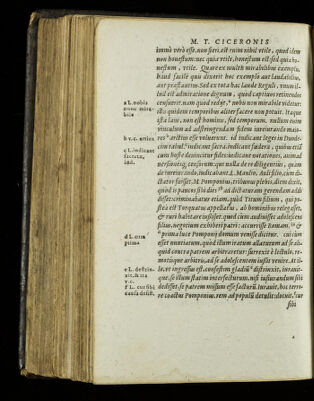 M. T. CICERONIS
immò verò esse.non fieri.est enim nihil vtile, quod idem
non honestum:nec quia vtile,honestum est:sed quia ho-
nestum, vtile. Quare ex multis mirabilibus exemplis,
haud facilè quis dixerit hoc exemplo aut laudabilius,
aut præstantius.Sed ex tota hac laude Reguli, vnum il-
lud est admiratione dignum, quod captiuos retinendos
censuit.nam quod redijt, nobis nunc mirabile videtur:
illis quidem temporibus aliter facere non potuit. Itaque
ista laus, non est hominis, sed temporum. nullum enim
vinculum ad astringendam fidem iureiurando maio-
res arctius esse voluerunt. id indicant leges in Duode-
cim tabul. indicant sacræ.indicant fœdera, quibus etiã
cum hoste deuincitur fides:indicant notationes, animad
uersionesq; censorum:qui nulla de re diligentius, quàm
de iureiurando,iudicabant. L. Manlio, Auli filio,cum di-
ctator fuisset.M.Pomponius,tribunus plebis,diem dixit,
quòd is paucos sibi dies ad dictaturam gerendam addi
disset:criminabatur etiam,quòd Titum filium, qui po-
stea est Torquatus appellatus, ab hominibus relegasset,
& ruri habitare iussisset.quod cùm audiuisset adolescens
filius,negotium exhiberi patri: accurrisse Romam, &
prima luce Pomponij domum venisse dicitur. cui cùm
esset nuntiatum,quòd illum iratum allaturum ad se ali-
quid contra patrem arbitraretur:surrexit è lectulo, re-
motisque arbitris,ad se adolescentem iussit venire. At il-
le,vt ingressus est,confestim gladiũ distrinxit, iurauit-
que, se illum statim interfecturum,nisi iusiurandum sibi
dedisset,se patrem missum esse facturũ.Iurauit, hoc terro-
re coactus Pomponius.rem ad populũ detulit:docuit, cur
sibi
a L. nobis
b v.c. artius
c L.indicant
d L.cum
prima
e L. destrin-
xit.